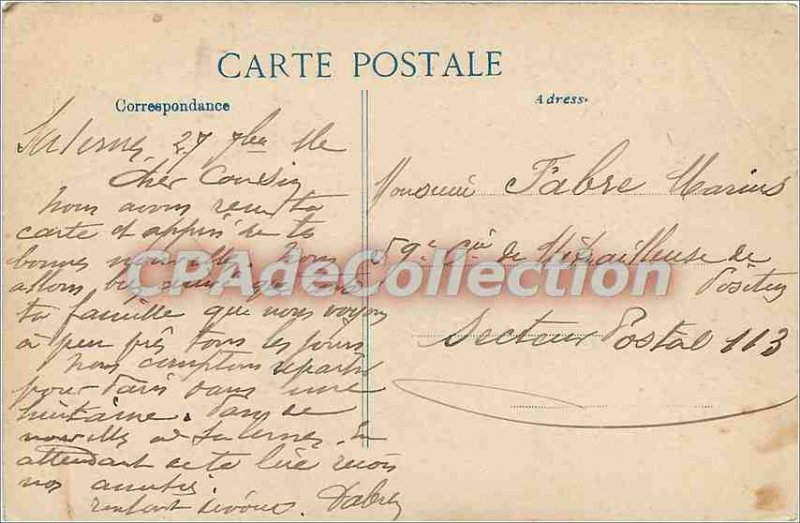 CARTE POSTALE
Correspondance
Adresse
Salernes 27 7bre
Cher Cousin
Nous avons reçu ta
carte et appris de te
bonnes nouvelles. Nous
allons bien ainsi que toute
ta famille que nous voyons
à peu près tous les jours
Nous comptons repartir
pour Paris dans une
huitaine. Pas de
nouvelles de Salernes. En
attendant de te lire reçois
nos amitiés.
Fabre
Monsieur Fabre Marius
59e Cie de Mitrailleuse de
Position
Secteur Postal 113
CPAdeCollection